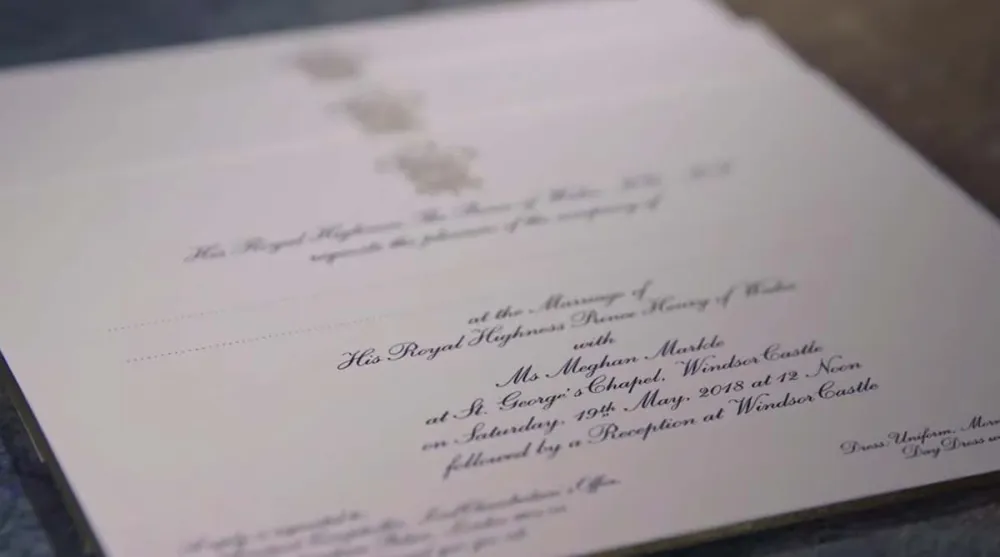 His Royal Highness The Prince of Wales,
requests the pleasure of the company of
at the Marriage of
His Royal Highness Prince Henry of Wales
with
Ms Meghan Markle
at St. George's Chapel, Windsor Castle
on Saturday, 19th May, 2018 at 12 Noon
followed by a Reception at Windsor Castle
Dress: Uniform,
Day Dress
A reply is requested to:
Lord Chamberlain's Office,
Palace, London